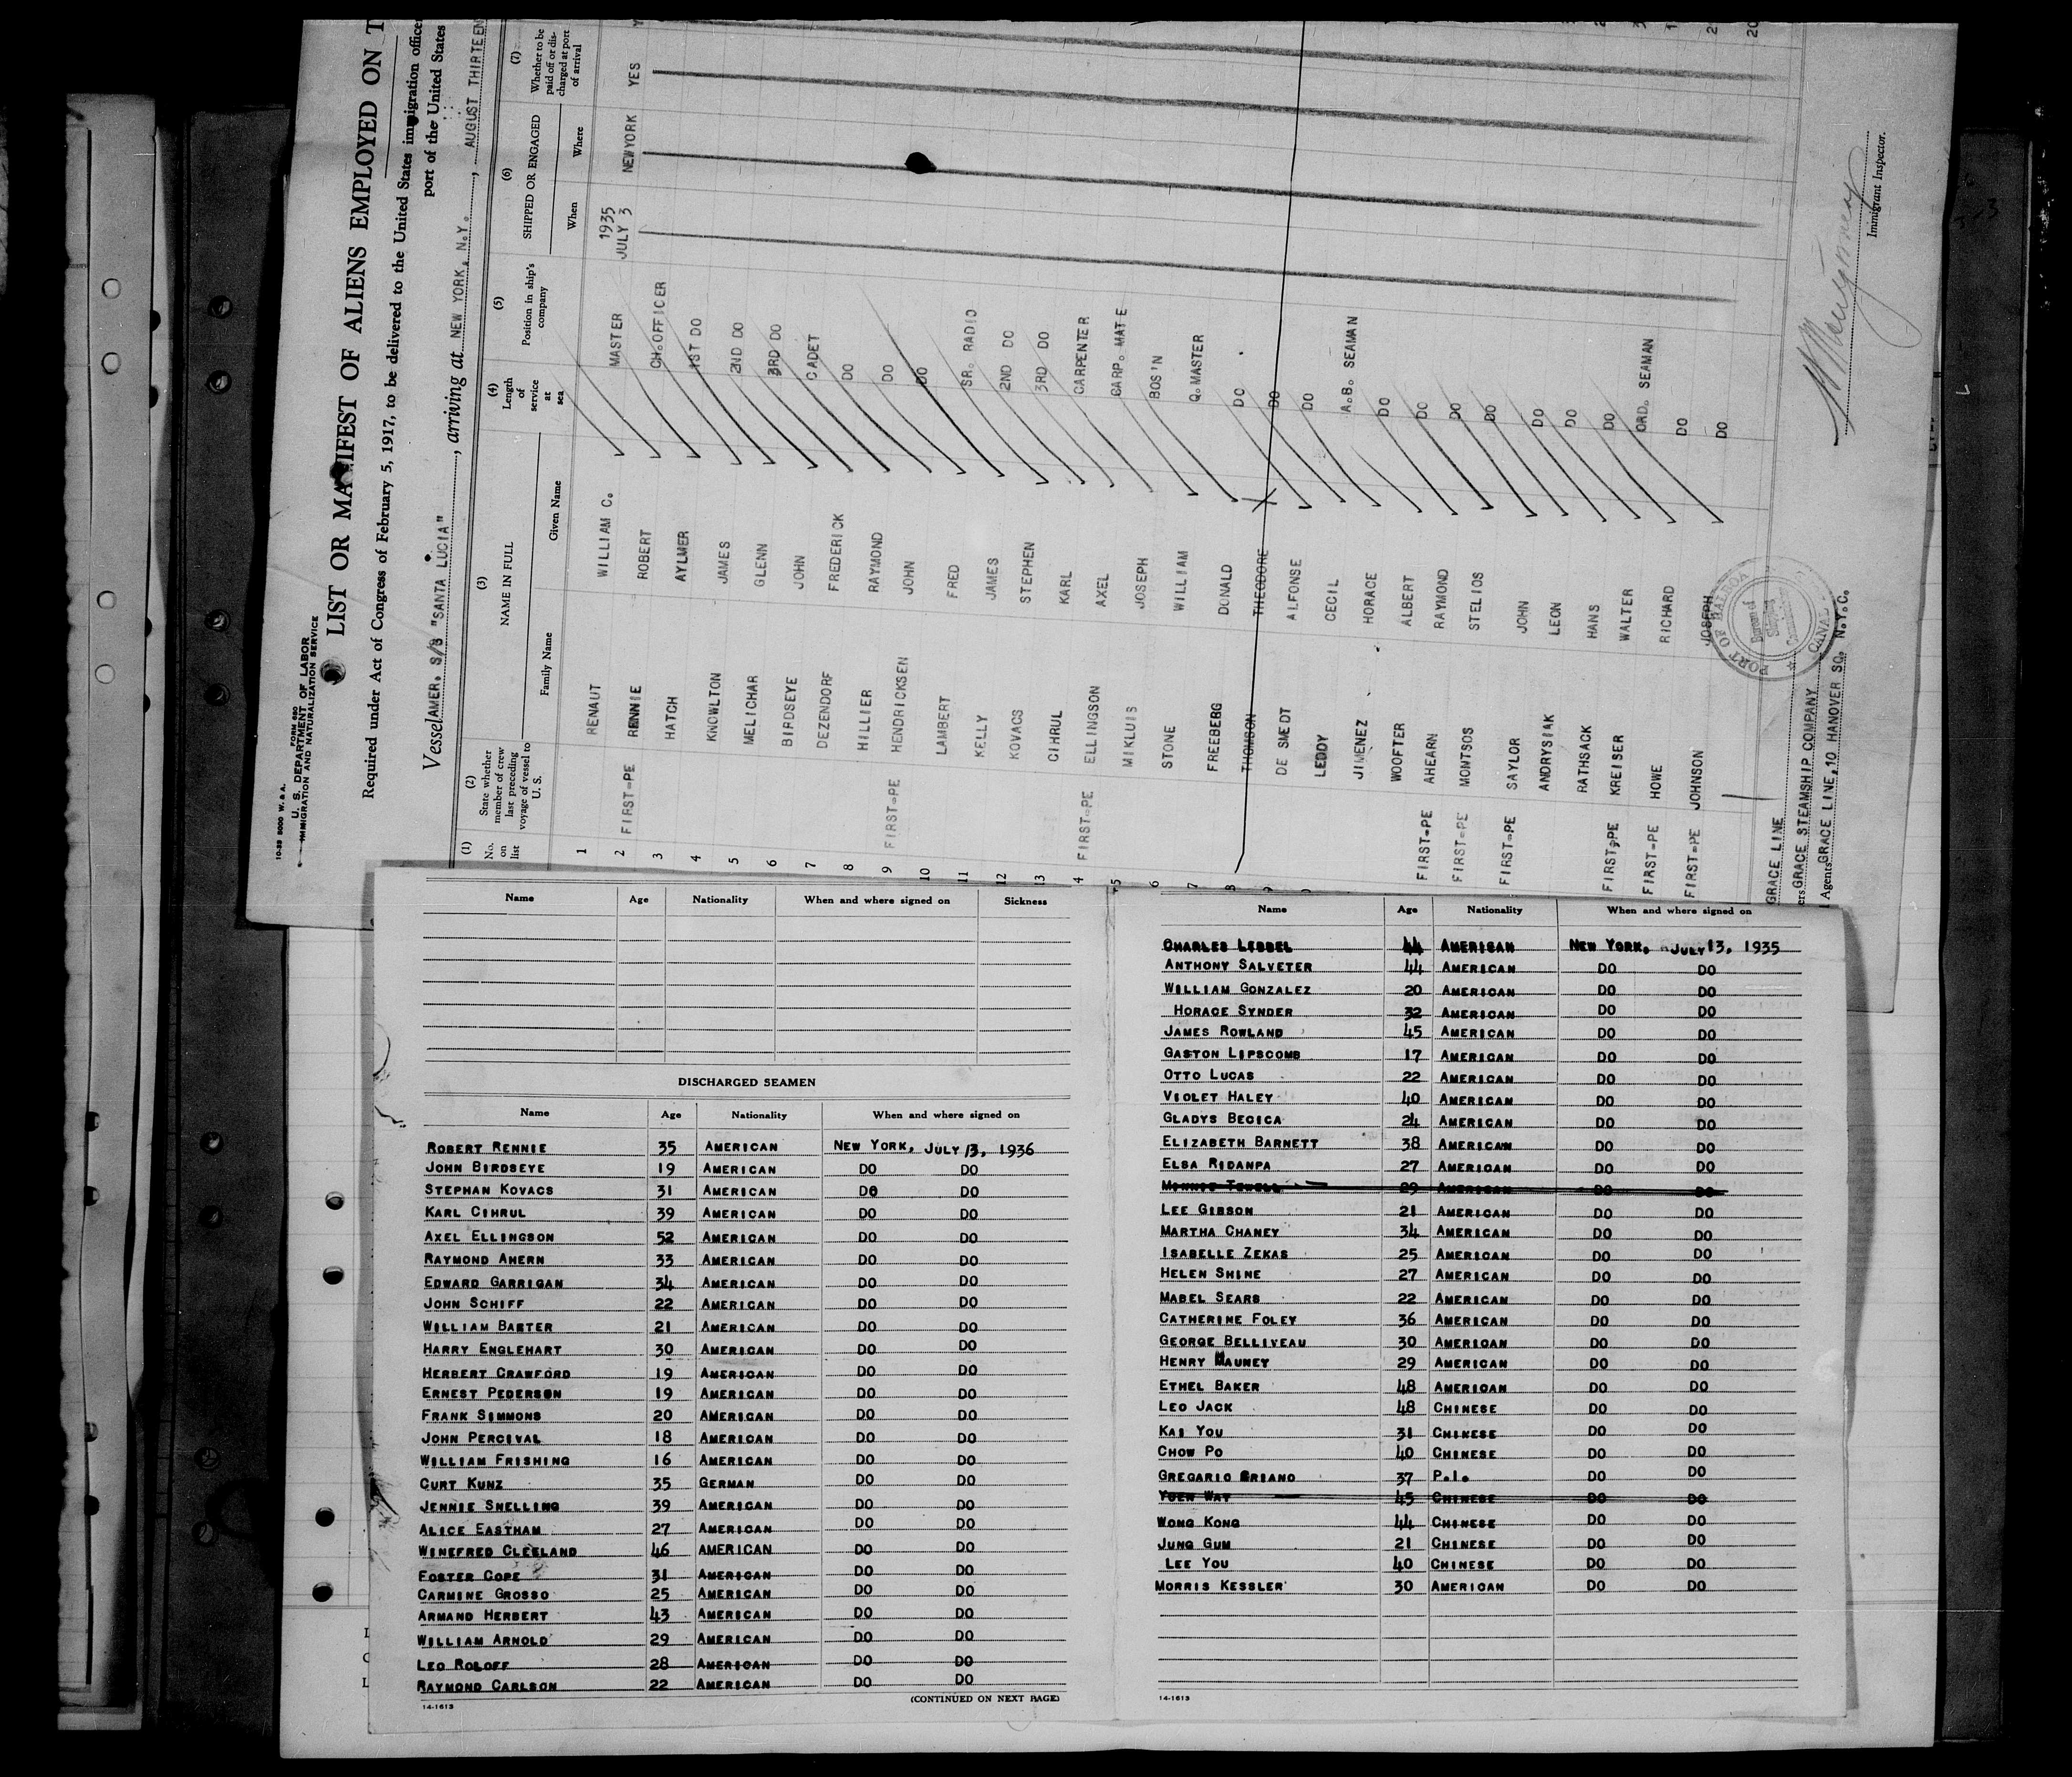 10-29 5000 W. & A.
FORM 680
U. S. DEPARTMENT OF LABOR
IMMIGRATION AND NATURALIZATION SERVICE
LIST OR MANIFEST OF ALIENS EMPLOYED ON T
Required under Act of Congress of February 5, 1917, to be delivered to the United States immigration office
port of the United States
Vessel AMER. S/S "SANTA LUCIA", arriving at NEW YORK, N.Y., AUGUST THIRTEEN
(1) No. on list
(2) State whether member of crew last preceding voyage of vessel to U. S.
(3) NAME IN FULL
Family Name Given Name
(4) Length of service at sea
(5) Position in ship's company
(6) SHIPPED OR ENGAGED
When Where
(7) Whether to be paid off or discharged at port of arrival
1 RENAUT WILLIAM C. MASTER 1935 JULY 3 NEWYORK YES
2 FIRST-PE RENNIE ROBERT CH.OFFICER
3 HATCH AYLMER 1ST DO
4 KNOWLTON JAMES 2ND DO
5 MELICHAR GLENN 3RD DO
6 BIRDSEYE JOHN CADET
7 DEZENDORF FREDERICK DO
8 HILLIER RAYMOND DO
9 FIRST-PE HENDRICKSEN JOHN DO
10 LAMBERT FRED SR. RADIO
11 KELLY JAMES 2ND DO
12 KOVACS STEPHEN 3RD DO
13 CIHRUL KARL CARPENTER
4 FIRST-PE ELLINGSON AXEL CARP. MATE
5 MIKLUIS JOSEPH BOS'N
6 STONE WILLIAM Q.MASTER
7 FREEBERG DONALD DO
8 THOMSON THEODORE DO
9 DE SMEDT ALFONSE DO
LEDDY CECIL A.B. SEAMAN
JIMENEZ HORACE DO
WOOFTER ALBERT DO
FIRST-PE AHEARN RAYMOND DO
FIRST-PE MONTSOS STELIOS DO
FIRST-PE SAYLOR JOHN DO
ANDRYSIAK LEON DO
RATHSACK HANS DO
FIRST-PE KREISER WALTER ORD. SEAMAN
FIRST-PE HOWE RICHARD DO
FIRST-PE JOHNSON JOSEPH DO
PORT OF BALBOA
CANAL
GRACE LINE
ers GRACE STEAMSHIP COMPANY
Agents GRACE LINE, 10 HANOVER SQ. N.Y.C.
Immigrant Inspector.
Name Age Nationality When and where signed on Sickness
DISCHARGED SEAMEN
Name Age Nationality When and where signed on
ROBERT RENNIE 35 AMERICAN NEW YORK, JULY 13, 1936
JOHN BIRDSEYE 19 AMERICAN DO DO
STEPHAN KOVACS 31 AMERICAN DO DO
KARL CIHRUL 39 AMERICAN DO DO
AXEL ELLINGSON 52 AMERICAN DO DO
RAYMOND AHERN 33 AMERICAN DO DO
EDWARD GARRIGAN 34 AMERICAN DO DO
JOHN SCHIFF 22 AMERICAN DO DO
WILLIAM BAXTER 21 AMERICAN DO DO
HARRY ENGLEHART 30 AMERICAN DO DO
HERBERT CRAWFORD 19 AMERICAN DO DO
ERNEST PEDERSON 19 AMERICAN DO DO
FRANK SIMMONS 20 AMERICAN DO DO
JOHN PERCIVAL 18 AMERICAN DO DO
WILLIAM FRISHING 16 AMERICAN DO DO
CURT KUNZ 35 GERMAN DO DO
JENNIE SNELLING 39 AMERICAN DO DO
ALICE EASTHAM 27 AMERICAN DO DO
WINEFRED CLEELAND 46 AMERICAN DO DO
FOSTER COPE 31 AMERICAN DO DO
CARMINE GROSSO 25 AMERICAN DO DO
ARMAND HERBERT 43 AMERICAN DO DO
WILLIAM ARNOLD 29 AMERICAN DO DO
LEO ROLOFF 28 AMERICAN DO DO
RAYMOND CARLSON 22 AMERICAN DO DO
14-1613 (CONTINUED ON NEXT PAGE)
Name Age Nationality When and where signed on
CHARLES LEBBEL 44 AMERICAN NEW YORK, JULY 13, 1935
ANTHONY SALVETER 44 AMERICAN DO DO
WILLIAM GONZALEZ 20 AMERICAN DO DO
HORACE SYNDER 32 AMERICAN DO DO
JAMES ROWLAND 45 AMERICAN DO DO
GASTON LIPSCOMB 17 AMERICAN DO DO
OTTO LUCAS 22 AMERICAN DO DO
VIOLET HALEY 40 AMERICAN DO DO
GLADYS BEGICA 24 AMERICAN DO DO
ELIZABETH BARNETT 38 AMERICAN DO DO
ELSA RIDANPA 27 AMERICAN DO DO
MINNIE TEWELL 29 AMERICAN DO DO
LEE GIBSON 21 AMERICAN DO DO
MARTHA CHANEY 34 AMERICAN DO DO
ISABELLE ZEKAS 25 AMERICAN DO DO
HELEN SHINE 27 AMERICAN DO DO
MABEL SEARS 22 AMERICAN DO DO
CATHERINE FOLEY 36 AMERICAN DO DO
GEORGE BELLIVEAU 30 AMERICAN DO DO
HENRY MAUNEY 29 AMERICAN DO DO
ETHEL BAKER 48 AMERICAN DO DO
LEO JACK 48 CHINESE DO DO
KAI YOU 31 CHINESE DO DO
CHOW PO 40 CHINESE DO DO
GREGARIO BRIANO 37 P.I. DO DO
YUEN WAY 45 CHINESE DO DO
WONG KONG 44 CHINESE DO DO
JUNG GUM 21 CHINESE DO DO
LEE YOU 40 CHINESE DO DO
MORRIS KESSLER 30 AMERICAN DO DO
14-1613